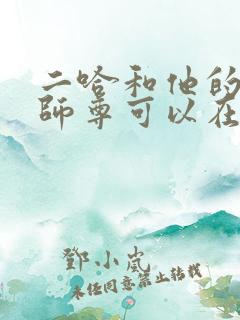 二哈和他的
師尊可以在
鄧小嵐
未经同意禁止转载